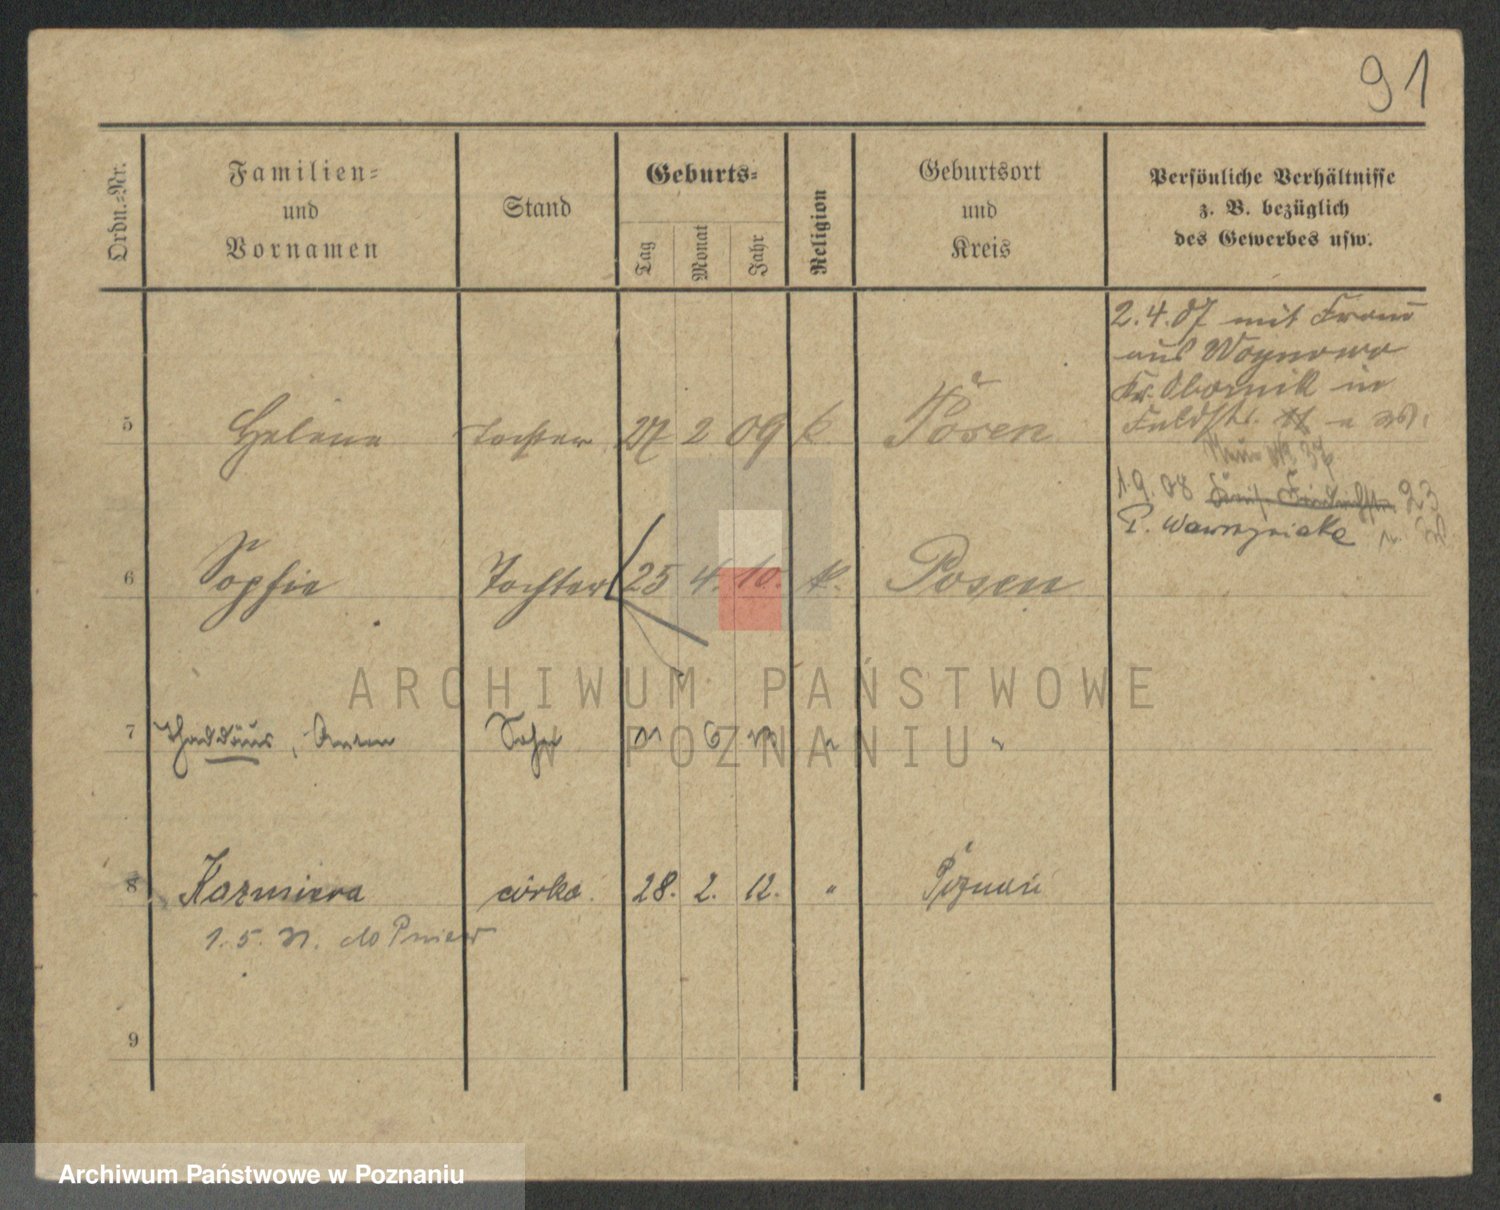 91
Ordn.-Nr.
Familien-
und
Vornamen
Stand
Geburts-
Tag
Monat
Jahr
Religion
Geburtsort
und
Kreis
Persönliche Verhältnisse
z. B. bezüglich
des Gewerbes usw.
2.4.07 mit Frau
aus Wognowo
Kr. Obornik in
5 Helene Tochter 27 2 09 k. Posen
1.9.08 23
P. Wawrzyniaka
6 Sophie Tochter 25 4. 10. k. Posen
ARCHIWUM PAŃSTWOWE
W POZNANIU
7 Thaddäus, Sohn
8 Kazmiera córka. 28. 2. 12. " Poznań
1.5. 31. do Pniew
9
Archiwum Państwowe w Poznaniu